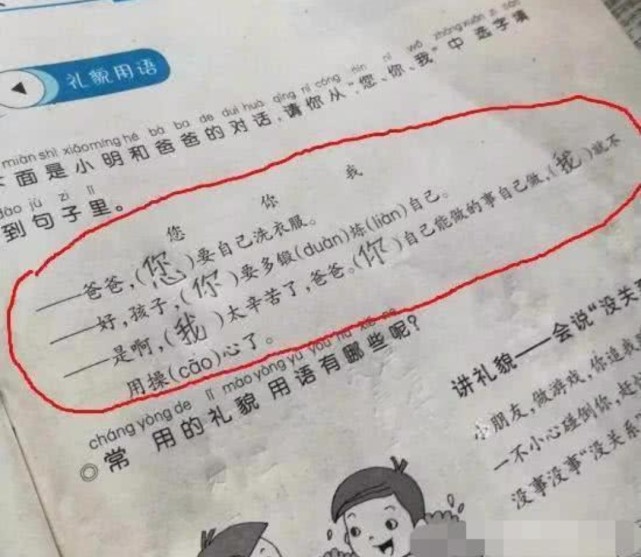 礼貌用语
miàn shì xiǎomíng hé bà ba de duì huà qǐng nǐ cóng nín nǐ wǒ zhōng xuǎn zì
面是小明和爸爸的对话,请你从“您、你、我”中选字填
dào jù zi lǐ
到句子里。
您 你 我
——爸爸,(您)要自己洗衣服。
——好,孩子,(你)要多锻(duàn)炼(liàn)自己。
——是啊,(我)太辛苦了,爸爸。(你)自己能做的事自己做,(我)就不
用操(cāo)心了。
cháng yòng de lǐ mào yòng yǔ yǒu nǎ xiē ne
◎常用的礼貌用语有哪些呢?
讲礼貌——会说“没关系
小朋友,做游戏,你追我
一不小心碰倒你,赶
没事没事“没关系